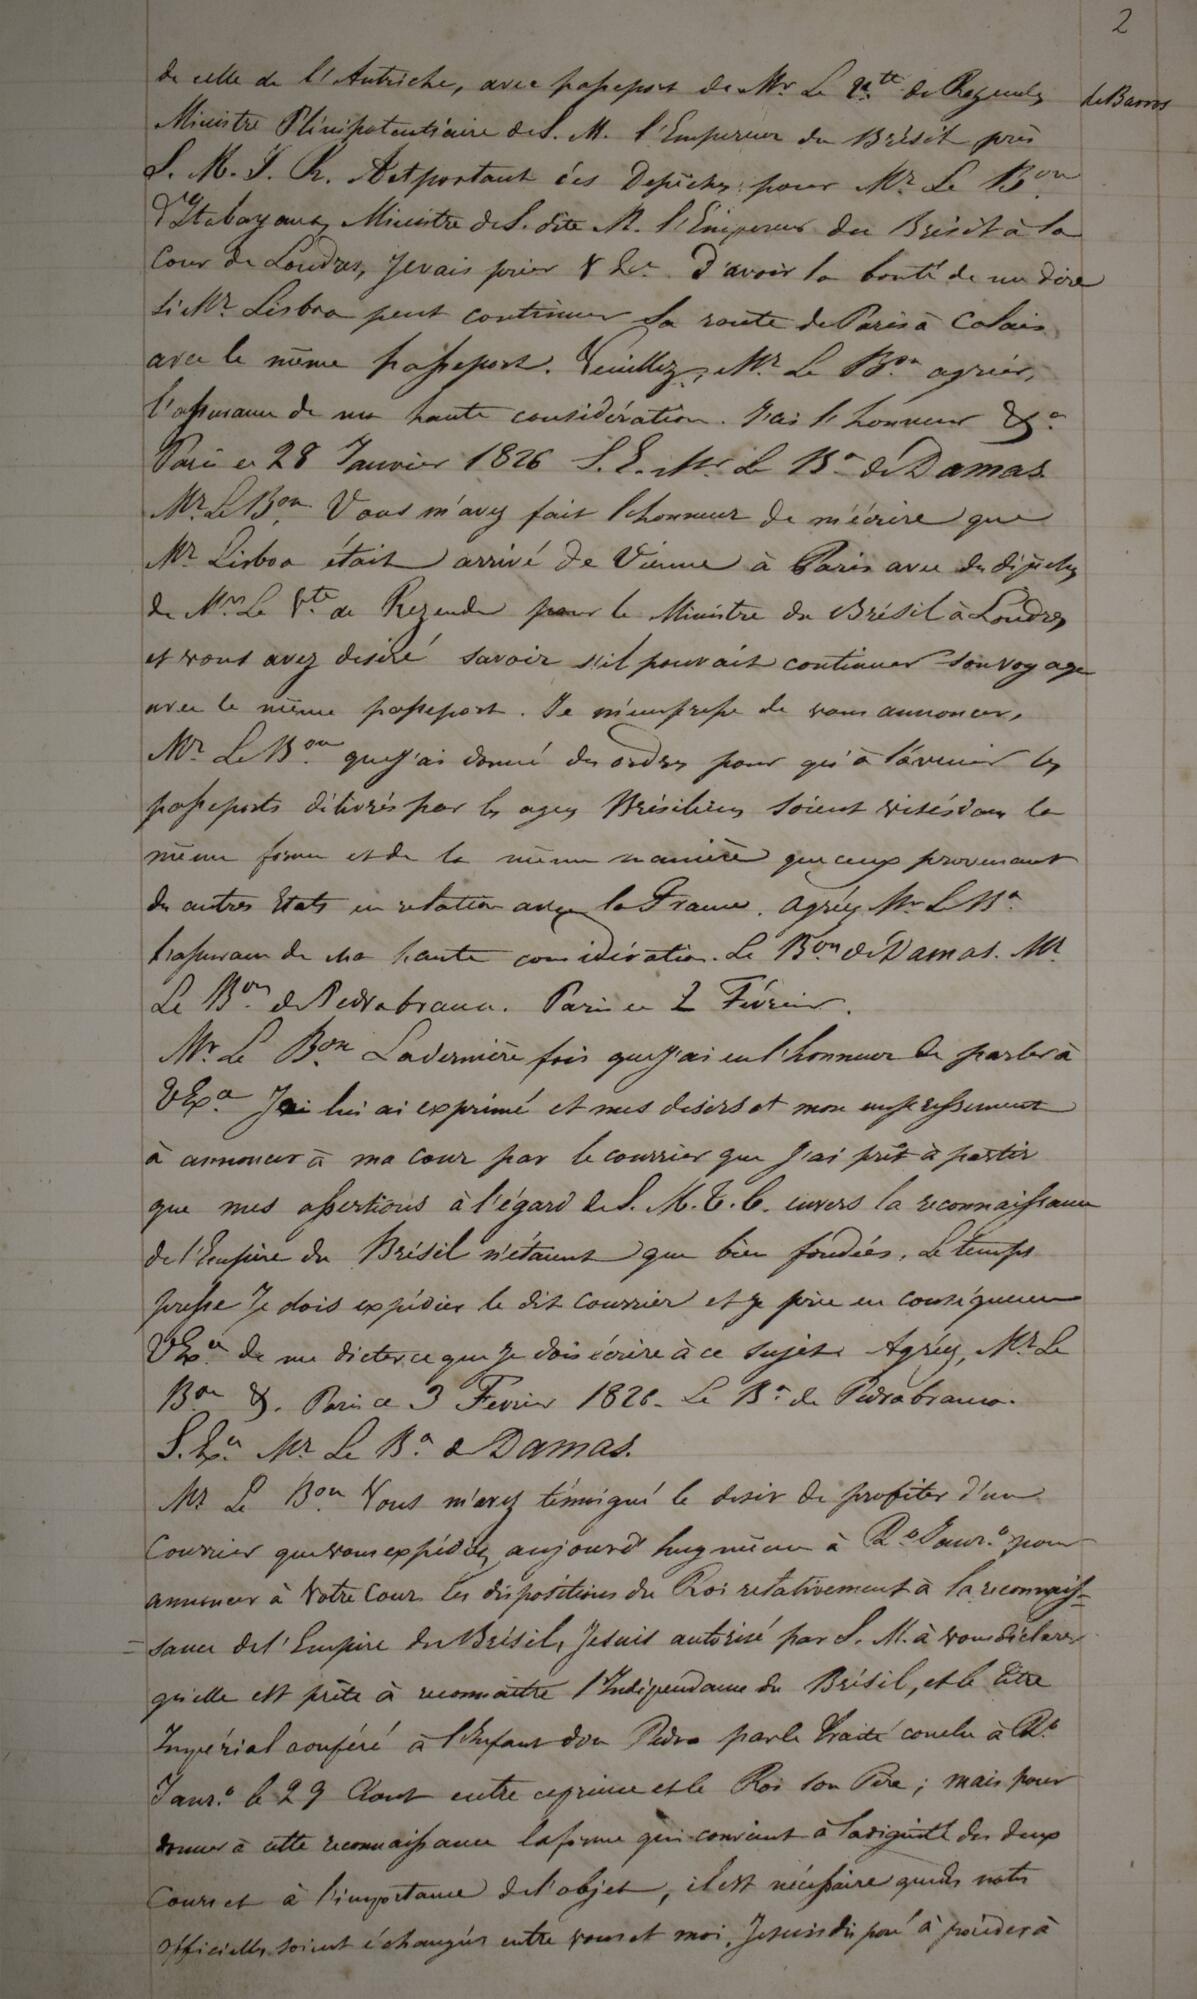 2
de celle de l'Autriche, avec passeport de Mr. Le Vte. de Rezende de Barros
Ministre Plénipotentiaire de S. M. l'Empereur du Brésil près
S. M. I. R. A. et portant des Depêches pour Mr. Le Bon.
d'Itabayana, Ministre de S. dite M. l'Empereur du Brésil à la
Cour de Londres, Je vais prier V Exa. d'avoir la bonté de me dire
si Mr. Lisboa peut continuer sa route de Paris à Calais
avec le même passeport. Veuillez, Mr. Le Bon. agréer,
l'assurance de ma haute considération. J'ai l'honneur &a
Paris ce 28 Janvier 1826 S. E. Mr. Le Bn. de Damas
Mr. Le Bon. Vous m'avez fait l'honneur de m'écrire que
Mr. Lisboa était arrivé de Vienne à Paris avec des dépêches
de Mr. Le Vte. de Rezende pour le Ministre du Brésil à Londres
et vous avez desiré savoir s'il pouvait continuer son voyage
avec le même passeport. Je m'empresse de vous annoncer,
Mr. Le Bon. que J'ai donné des ordres pour qu'à l'avenir les
passeports délivrés par les agens Brésiliens soient visés dans la
même forme et de la même manière que ceux provenant
des autres Etats en relation avec la France. Agréez Mr. Le Bn.
l'assurance de ma haute considération. Le Bon. de Damas. Mr.
Le Bon. de Pedrabranca. Paris ce 2 Février.
Mr. Le Bon. La dernière fois que J'ai eu l'honneur de parler à
V Exa. Je lui ai exprimé et mes desirs et mon empressement
à annoncer à ma cour par le courrier que J'ai prêt à partir
que mes assertions à l'égard de S. M. T. C. envers la reconnaissance
de l'Empire du Brésil n'étaient que bien fondées. Le temps
presse Je dois expédier le dit courrier et je prie en conséquence
V Exa. de me dicter ce que Je dois écrire à ce sujet. Agréez, Mr. Le
Bon. &. Paris ce 3 Fevrier 1826. Le Bn. de Pedrabranca.
S. Exa. Mr. Le Bn. de Damas.
Mr. Le Bon. Vous m'avez témoigné le desir de profiter d'un
Courrier que vous expédiez aujourd'huy même à Ro. Janro. pour
annoncer à Votre Cour les dispositions du Roi relativement à la reconnais=
=sance de l'Empire du Brésil, Je suis autorisé par S. M. à vous déclarer
qu'elle est prête à reconnaître l'Indépendance du Brésil, et le titre
Impérial conféré à l'Infant don Pedro par le Traité conclu à Ro.
Janro. le 29 Aout entre ce prince et le Roi son Père; mais pour
donner à cette reconnaissance la forme qui convient à la dignité des deux
Cours et à l'importance de l'objet, il est nécéssaire que des notes
officielles soient échangées entre vous et moi. Je suis disposé à procéder à